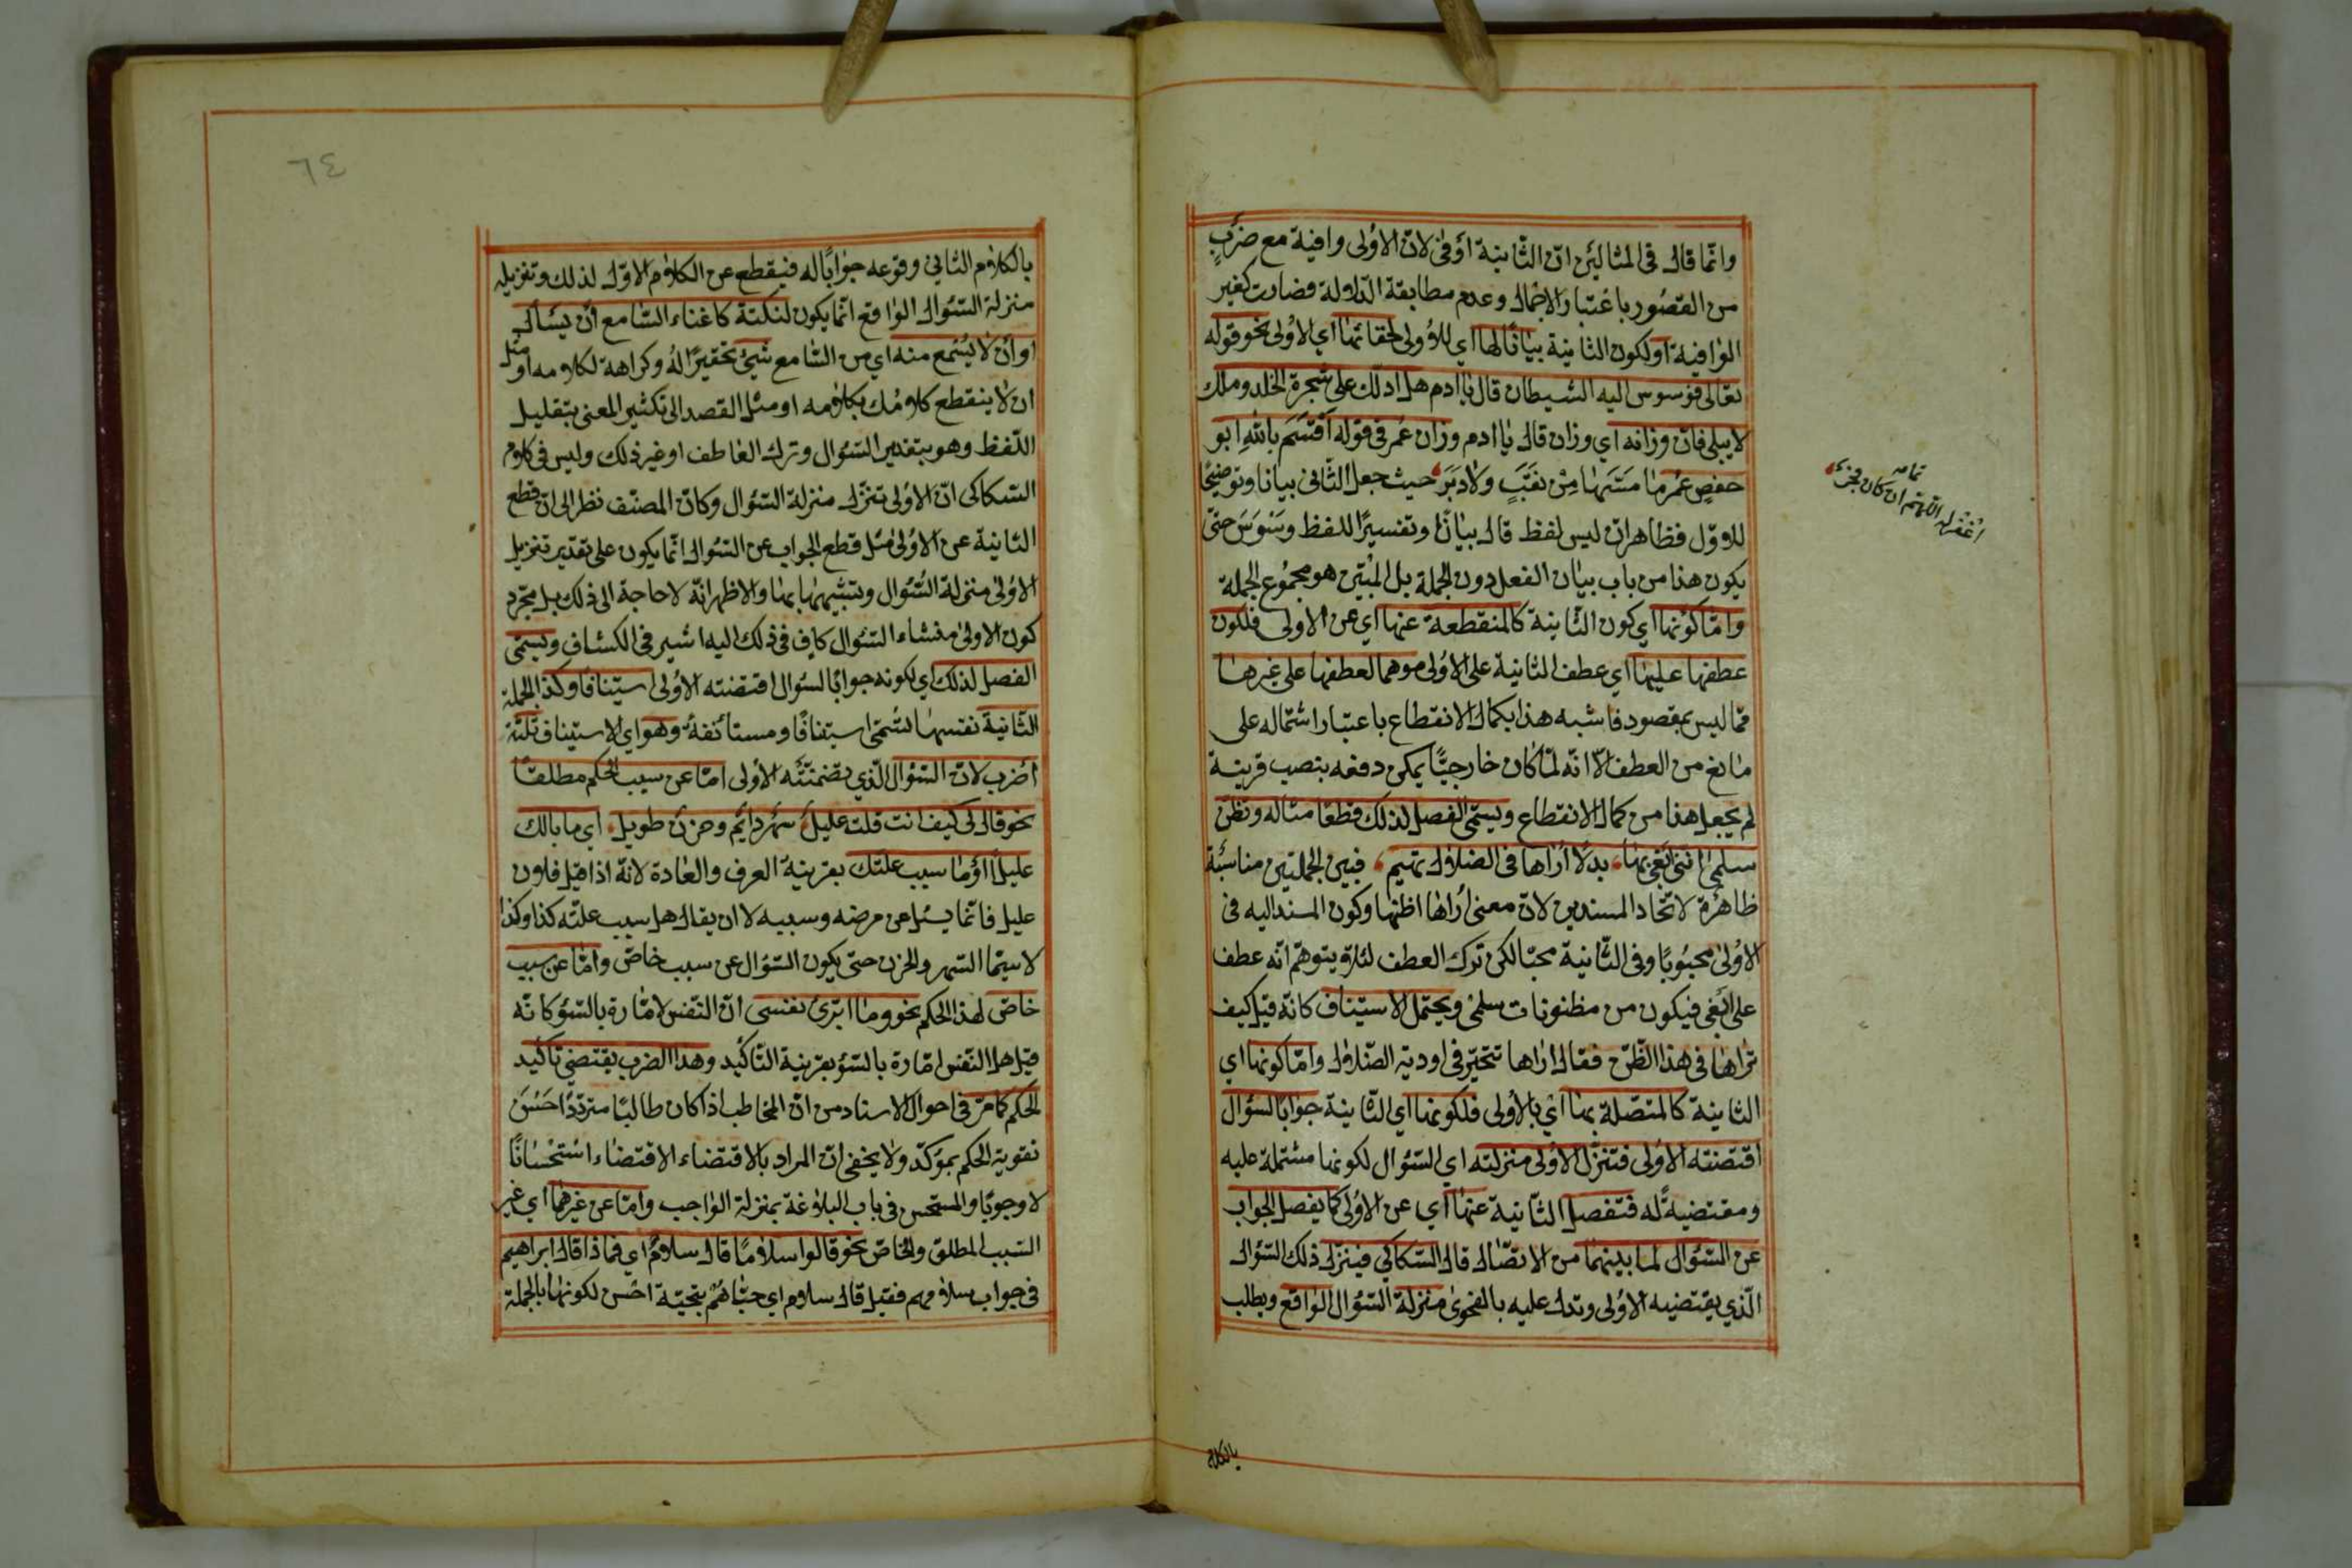 وانّما قال فى المثالين ان الثّانية اوفى لانّ الاولى وافية مع ضربٍ
من القصور باعتبار الاجمال وعدم مطابقة الدلالة فصارت كغير
الوافية او لكون الثانية بيانًا لها اى للاولى لخفائها اي الاولى نحو قوله
تعالى فوسوس اليه الشيطان قال يا ادم هل ادلّك على شجرة الخلد وملك
لا يبلى فانّ وزانه اي وزان قال يا ادم وزان عمر فى قوله اقسم بالله ابو
حفصٍ عمر ما مسّها من نقبٍ ولا دبر حيث جعل الثّانى بيانا وتوضيحًا
للاوّل فظاهر ان ليس لفظ قال بيانًا وتفسيرًا للفظ وسوس حتّى
يكون هذا من باب بيان الفعل دون الجملة بل المبيّن هو مجموع الجملة
وامّا كونها اي كون الثّانية كالمنقطعة عنها اي عن الاولى فلكون
عطفها عليها اي عطف الثانية على الاولى موهما لعطفها على غيرها
ممّا ليس بمقصود فاشبه هذا بكمال الانقطاع باعتبار اشتماله على
مانع من العطف الّا انّه لمّا كان خارجيًّا يمكن دفعه بنصب قرينة
لم يجعل هذا من كمال الانقطاع ويسمّى الفصل لذلك قطعا مثاله وتظنّ
سلمى انّنى ابغى بها بدلًا اراها فى الضلال تهيم فبين الجملتين مناسبة
ظاهرة لاتّحاد المسندين لانّ معنى اراها اظنها وكون المسند اليه فى
الاولى محبوبًا وفى الثّانية محبّا لكن ترك العطف لئلّا يتوهّم انّه عطف
على ابغى فيكون من مظنونات سلمى ويحتمل الاستيناف كانّه قيل كيف
تراها فى هذا الظّنّ فقال اراها تتحيّر فى اودية الضّلال وامّا كونها اي
الثانية كالمتّصلة بها اي بالاولى فلكونها اي الثّانية جوابًا لسؤال
اقتضته الاولى فتنزّل الاولى منزلته اي السّؤال لكونها مشتملة عليه
ومقتضيةً له فتفصل الثّانية عنها اي عن الاولى كما يفصل الجواب
عن السّؤال لما بينهما من الاتصّال قال السّكاكي فينزل ذلك السّؤال
الّذي يقتضيه الاولى وتدل عليه بالفحوى منزلة السّؤال الواقع ويطلب
بالكلام
تمامه
اغفر له اللّهمّ ان كان فجر
٦٤
بالكلام الثاني وقوعه جوابًا له فيقطع عن الكلام الاوّل لذلك وتنزيله
منزلة السّؤال الواقع انّما يكون لنكتة كاغناء السّامع ان يسأل
او ان لا يسمع منه اي من السّامع شيئ تحقيرًا له وكراهة لكلامه او مثل
ان لا ينقطع كلامك بكلامه او مثل القصد الى تكثير المعنى بتقليل
اللّفظ وهو بتقدير السّؤال وترك العاطف او غير ذلك وليس فى كلام
السّكاكى انّ الاولى تنزّل منزلة السّؤال وكانّ المصنّف نظر الى ان قطع
الثانية عن الاولى مثل قطع الجواب عن السّؤال انّما يكون على تقدير تنزيل
الاولى منزلة السّؤال وتشبيهها بها والاظهر انّه لا حاجة الى ذلك بل مجرّد
كون الاولى منشاء السّؤال كاف فى ذلك اليه اشير فى الكشاف ويسمّى
الفصل لذلك اي لكونه جوابًا لسؤال اقتضته الاولى استينافا وكذا الجملة
الثّانية نفسها تسمّى استينافًا ومستأنفة وهو اي الاستيناف ثلثة
اضرب لانّ السّؤال الّذي تضمنّته الاولى امّا عن سبب الحكم مطلقًا
نحو قال لى كيف انت قلت عليل سهر دائم وحزن طويل اي ما بالك
عليلًا او ما سبب علّتك بقرينة العرف والعادة لانّه اذا قيل فلان
عليل فانّما يسئل عن مرضه وسببه لا ان يقال هل سبب علّته كذا وكذا
لا سيّما السّهر والحزن حتّى يكون السّؤال عن سبب خاصّ وامّا عن سبب
خاصّ لهذا الحكم نحو وما ابرّئ نفسى انّ النّفس لامّارة بالسّؤ كانّه
قيل هل النّفس امّارة بالسّؤ بقرينة التّاكيد وهذا الضرب يقتضي تاكيد
الحكم كما مرّ فى احوال الاسناد من انّ المخاطب اذا كان طالبًا متردّدًا حسن
تقوية الحكم بمؤكّد ولا يخفى انّ المراد بالاقتضاء الاقتضاء استحسانًا
لا وجوبًا والمستحسن فى باب البلاغة بمنزلة الواجب وامّا عن غيرهما اي غير
السّبب المطلق والخاصّ نحو قالوا سلامًا قال سلامٌ اي فماذا قال ابراهيم
فى جواب سلامهم فقيل قال سلام اي حيّاهم بتحيّة احسن لكونها بالجملة